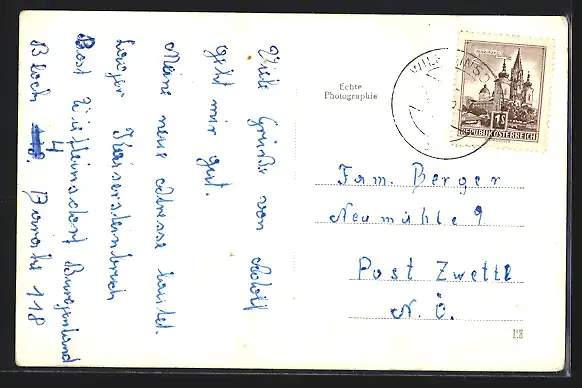 Viele Grüße von Adolf
geht mir gut.
Meine neue Adresse lautet.
Lager Kaisersteinbruch
Post Wilfleinsdorf Burgenland
Block 4 Baracke 118
Echte
Photographie
1S
REPUBLIK ÖSTERREICH
Fam. Berger
Neumühle 9
Post Zwettl
N. Ö.